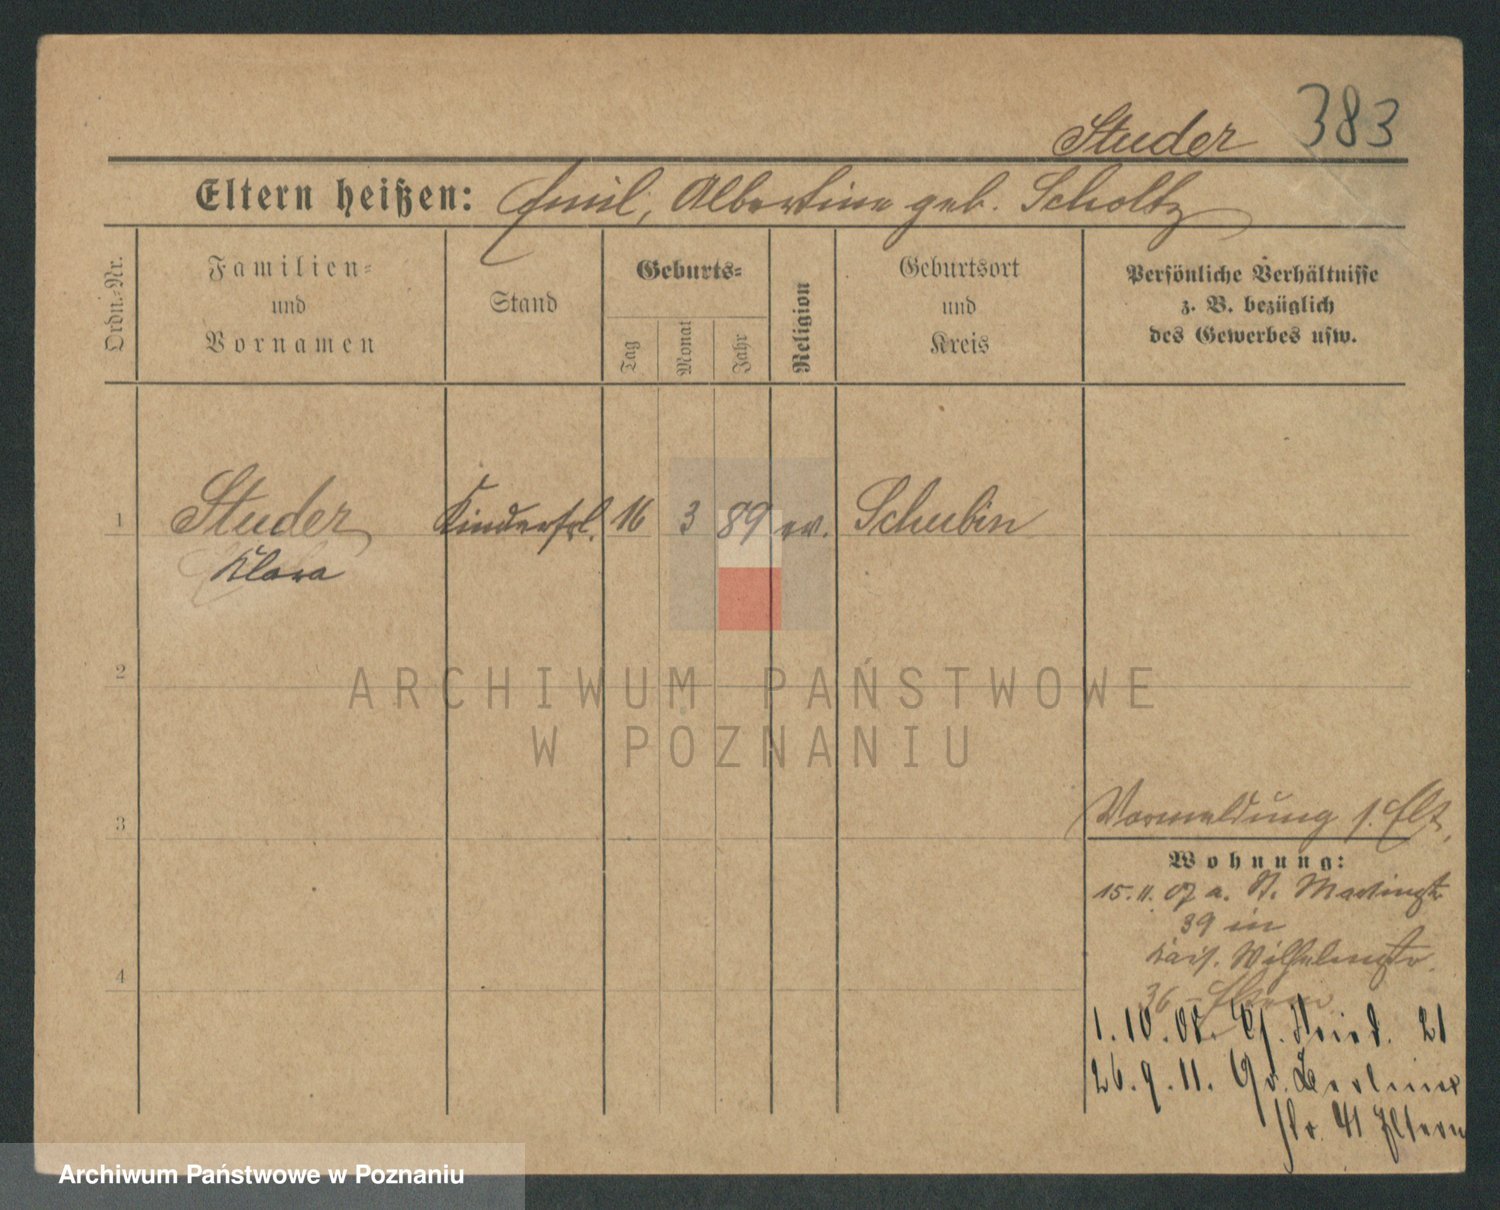 383
Studer
Eltern heißen: Emil, Albertine geb. Scholtz
Ordn.-Nr.
Familien-
und
Vornamen
Stand
Geburts-
Tag
Monat
Jahr
Religion
Geburtsort
und
Kreis
Persönliche Verhältnisse
z. B. bezüglich
des Gewerbes usw.
1 Studer Kinderfrl. 16 3 89 ev. Schubin
Klara
2
ARCHIWUM PAŃSTWOWE
W POZNANIU
3
Vormeldung s. Elt.
Wohnung:
15.11.07 a. St. Martinstr
39 in
Kais. Wilhelmstr.
36 - Eltern
1.10.08. 21
4
26.9.11. Gr. Berliner
str. 41 Eltern
Archiwum Państwowe w Poznaniu